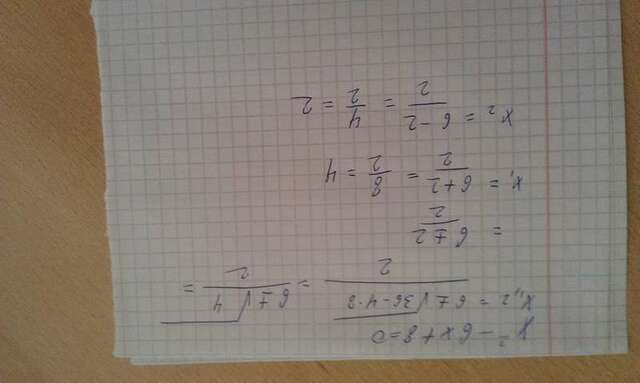 x² - 6x + 8 = 0
x₁,₂ = (6 ± √(36 - 4·8))/2 = (6 ± √4)/2 =
= (6 ± 2)/2
x₁ = (6 + 2)/2 = 8/2 = 4
x₂ = (6 - 2)/2 = 4/2 = 2